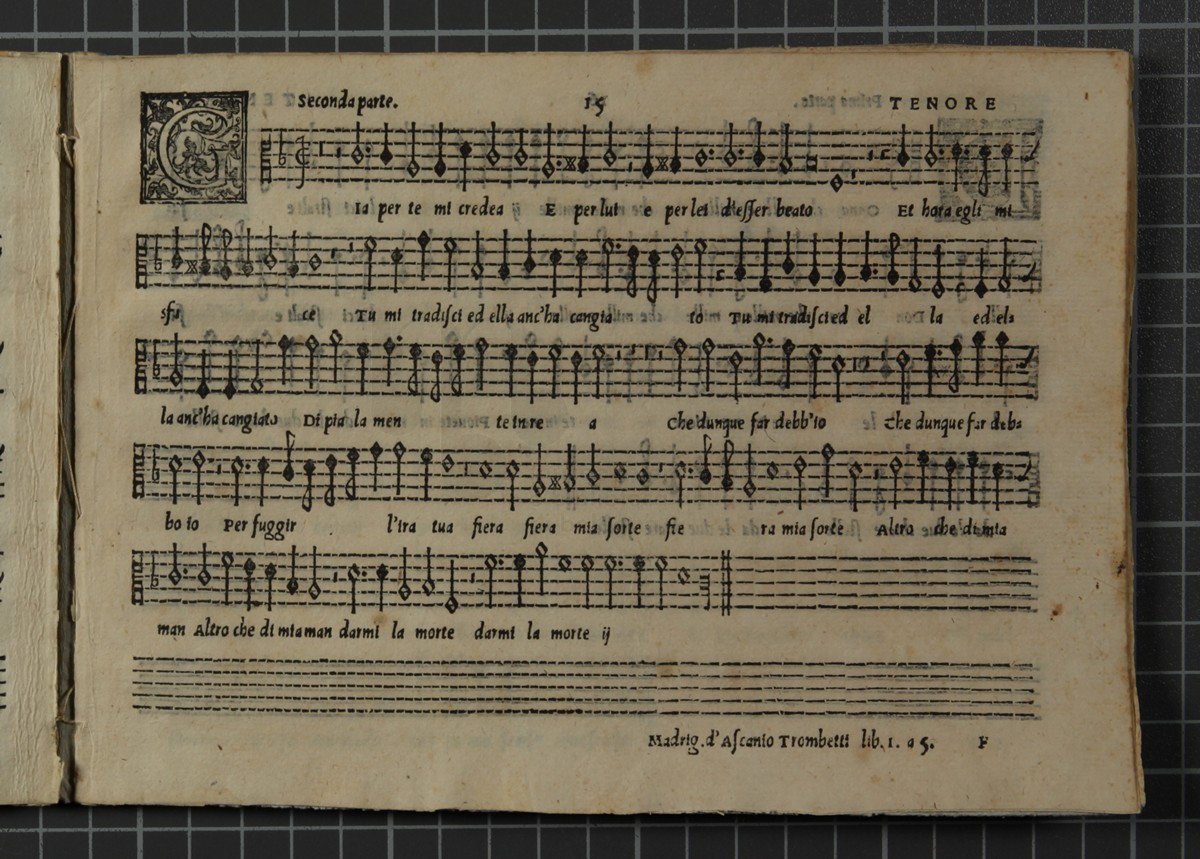 Seconda parte. 15 TENORE
GIa per te mi credea ij E per lui e per lei d'esser beato Et hora egli mi
sfa ce Tu mi tradisci ed ella anc'ha cangia to Tu mi tradisci ed el la ed el-
la anc'ha cangiato Di pia la men te in re a Che dunque far debb'io Che dunque far deb-
bo io Per fuggir l'ira tua fiera fiera mia sorte fie ra mia sorte Altro che di mia
man Altro che di mia man darmi la morte darmi la morte ij
Madrig. d'Ascanio Trombetti lib. 1. a 5. F